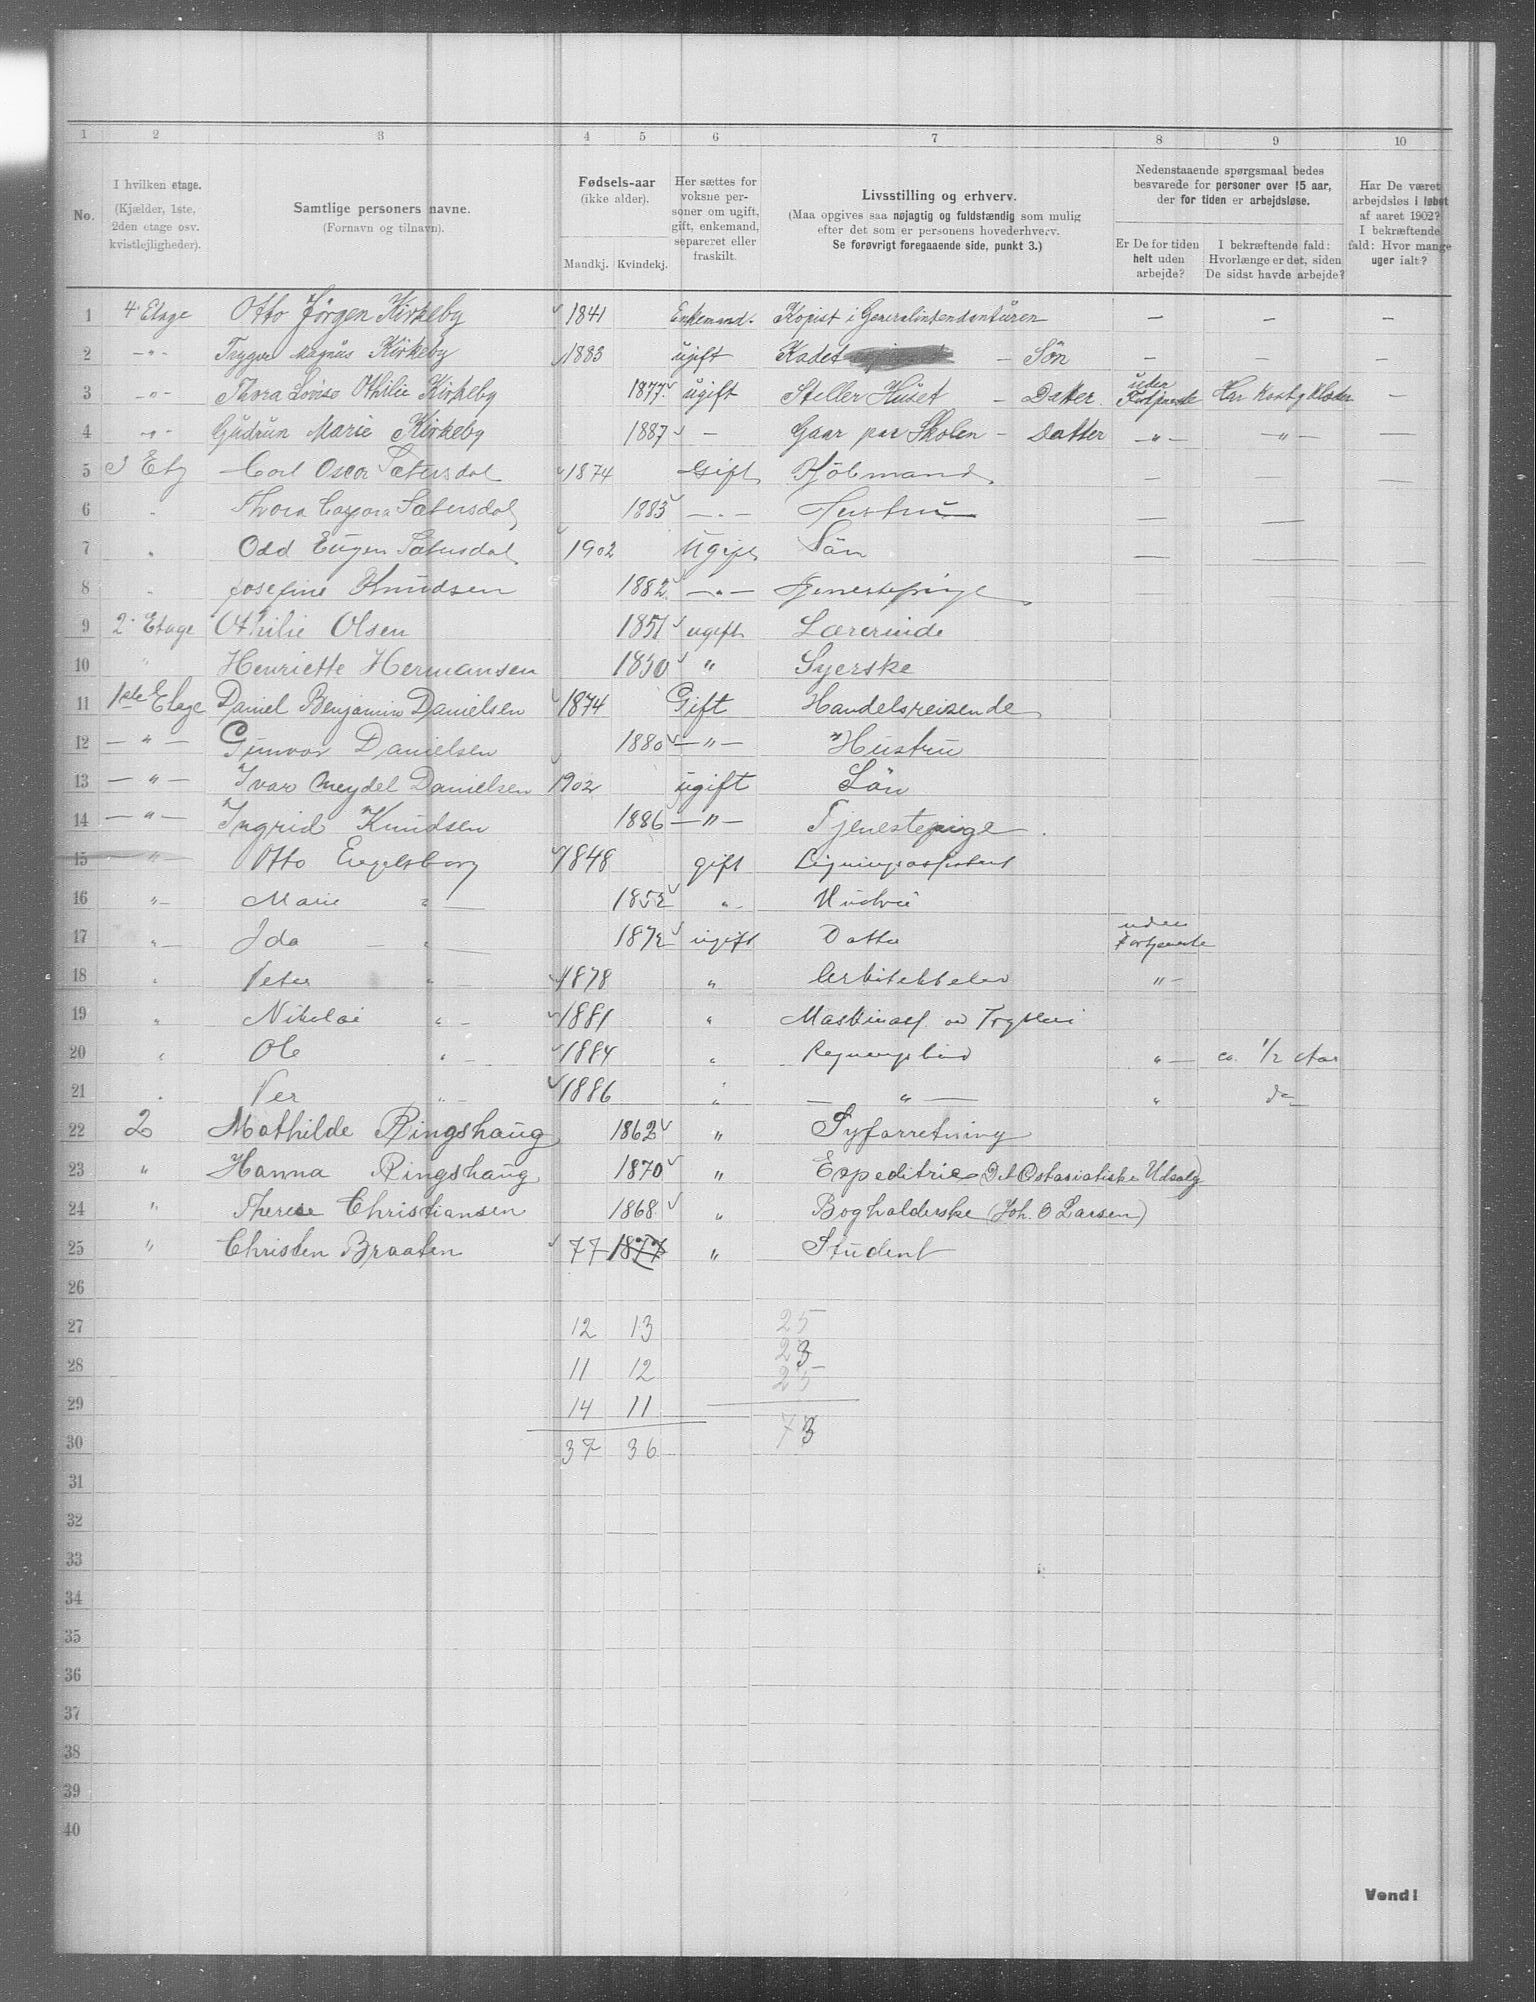 1 2 3 4 5 6 7 8 9 10
No.
I hvilken etage.
(Kjælder, 1ste,
2den etage osv.
kvistlejligheder).
Samtlige personers navne.
(Fornavn og tilnavn).
Fødsels-aar
(ikke alder).
Mandkj. Kvindekj.
Her sættes for
voksne per-
soner om ugift,
gift, enkemand,
separeret eller
fraskilt.
Livsstilling og erhverv.
(Maa opgives saa nøjagtig og fuldstændig som mulig
efter det som er personens hovederhverv.
Se forøvrigt foregaaende side, punkt 3.)
Nedenstaaende spørgsmaal bedes
besvarede for personer over 15 aar,
der for tiden er arbejdsløse.
Er De for tiden
helt uden
arbejde?
I bekræftende fald:
Hvorlænge er det, siden
De sidst havde arbejde?
Har De været
arbejdsløs i løbet
af aaret 1902?
I bekræftende
fald: Hvor mange
uger ialt?
1 4' Etage Otto Jörgen Kirkeby 1841 Enkemand. Kopist i Generalintendantüren — — —
2 -"- Trygve Magnüs Kirkeby 1883 ugift Kadet — Sön — — —
3 -"- Thora Lovise Othilie Kirkeby 1877 ugift Steller Hüset — Datter uden Fortjeneste Har Kost og Klæder —
4 -"- Güdrün Marie Kirkeby 1887 — Gaar paa Skolen — Datter —"— —"— —
5 3 Etg Carl Oscar Sætersdal 1874 Gift Kjöbmand — — —
6 " Thora Caspara Sætersdal 1883 —"— Hustrü — —
7 " Odd Eügen Sætersdal 1902 Ugift Sön — — —
8 " Josefine Knüdsen 1882 —"— Tjenestepige — — —
9 2' Etage Othilie Olsen 1851 ugift Lærerinde
10 " Henriette Hermansen 1850 " Syerske
11 1ste Etage Daniel Benjamin Danielsen 1874 Gift Handelsreisende
12 —"— Günvor Danielsen 1880 —"— Hüstrü
13 —"— Ivar Meydel Danielsen 1902 ügift Sön
14 —"— Ingrid Knüdsen 1886 —"— Tjenestepige
15 " Otto Engelsborg 1848 gift Ligningsassistent
16 " Marie " 1852 " Hustru
17 " Ida — " 1872 ugift Datter uden Fortjeneste
18 " Peter " 1878 " Arkitektelev " —
19 " Nikolai " 1881 " Maskinass. ved Trykkeri
20 " Ole " 1884 " " — ca. 1/2 Aar
21 " Per " 1886 " — " — " do
22 2 Mathilde Ringshaüg 1862 " Syforretning
23 " Hanna Ringshaüg 1870 " Expeditrice (Det Ostasiatiske Udsalg)
24 " Therese Christiansen 1868 " Bogholderske (Joh. O Larsen)
25 " Christen Braaten 77 1877 " Stüdent
26
27 12 13 25
28 11 12 23
25
29 14 11
30 37 36 73
31
32
33
34
35
36
37
38
39
40
Vend!